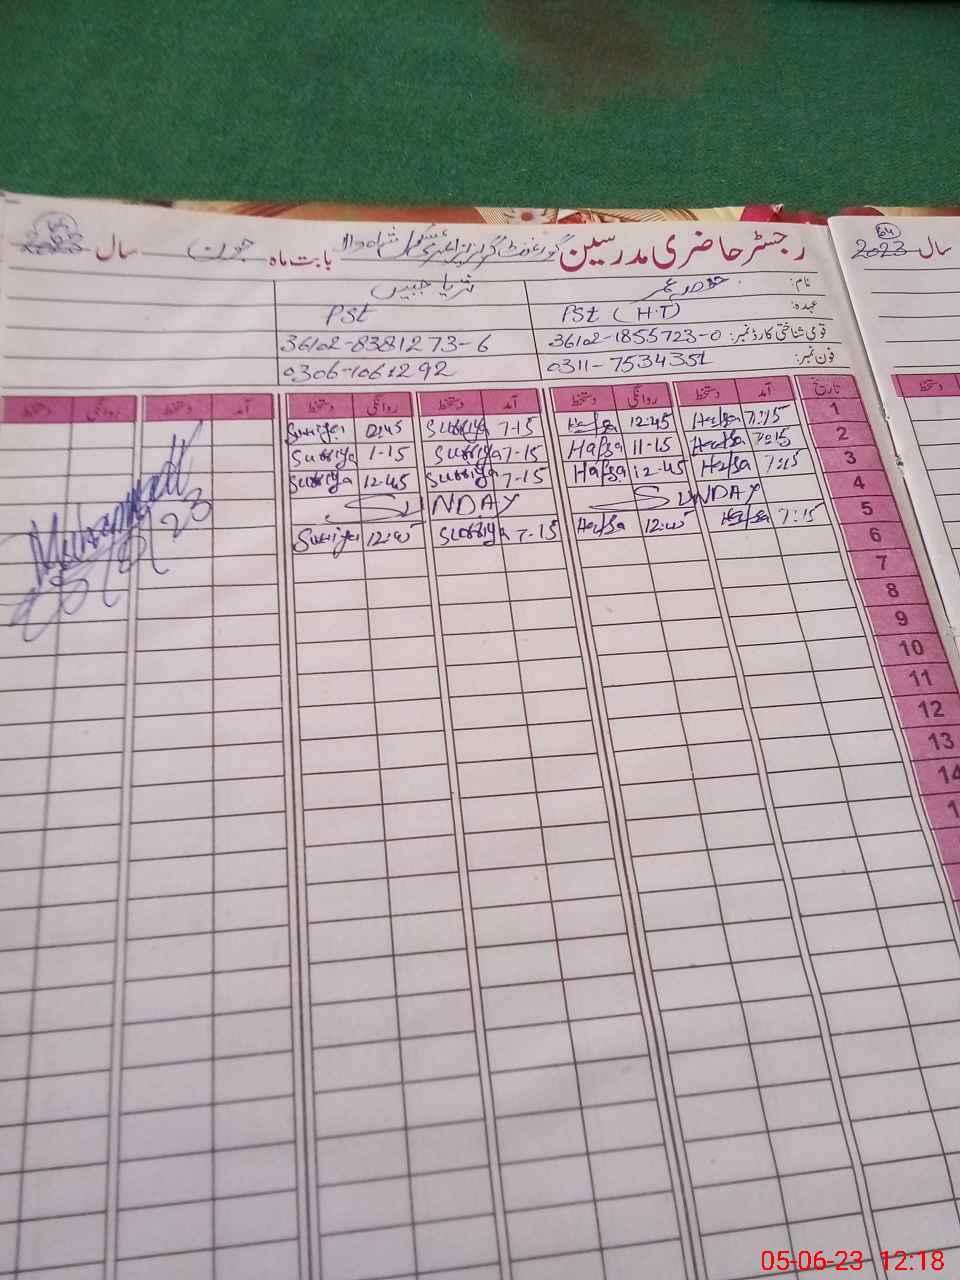 رجسٹر حاضری مدرسین گورنمنٹ گرلز پرائمری سکول بابت ماہ جون سال 2023
سال 2023
64
نام: حفصہ عمر ثریا جبیں
عہدہ: PST (H.T) PST
قومی شناختی کارڈ نمبر: 36102-1855723-0 36102-8381273-6
فون نمبر: 0311-7534351 0306-1061292
تاریخ آمد دستخط روانگی دستخط آمد دستخط روانگی دستخط دستخط روانگی دستخط
دستخط
1 7:15 Hafsa 12:45 Hafsa 7-15 Surriya 12:45 Surriya
2 7:15 Hafsa 11-15 Hafsa 7-15 Surriya 1-15 Surriya
3 7:15 Hafsa 12-45 Hafsa 7-15 Surriya 12-45 Surriya
4 SUNDAY SUNDAY
5 7:15 Hafsa 12:45 Hafsa 7-15 Surriya 12:45 Surriya
6
7
8
9
10
11
12
13
14
1
23
05-06-23 12:18